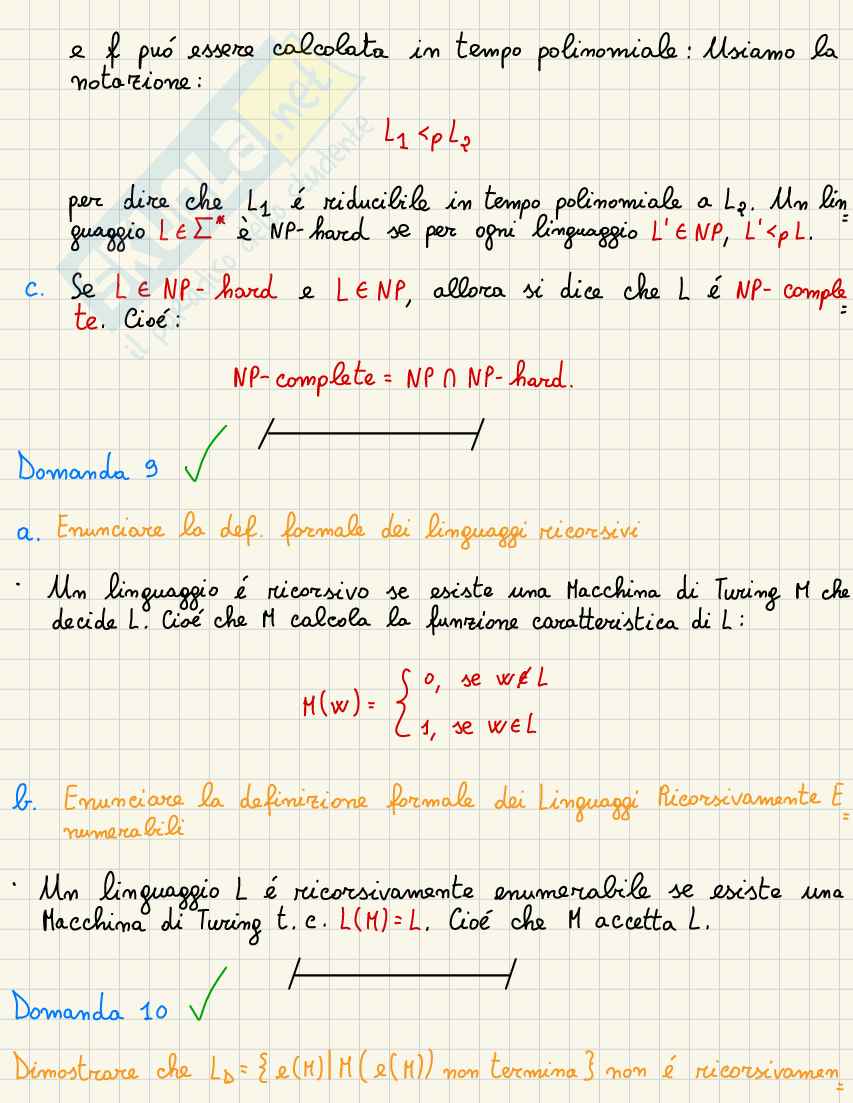 e f puó essere calcolata in tempo polinomiale: Usiamo la
notazione:
L₁ <p L₂
per dire che L₁ é riducibile in tempo polinomiale a L₂. Un lin=
guaggio L ∈ Σ* è NP-hard se per ogni linguaggio L' ∈ NP, L' <p L.
c. Se L ∈ NP-hard e L ∈ NP, allora si dice che L é NP-comple=
te. Cioé:
NP-complete = NP ∩ NP-hard.
Domanda 9 ✓
a. Enunciare la def. formale dei linguaggi ricorsivi
· Un linguaggio é ricorsivo se esiste una Macchina di Turing M che
decide L. Cioé che M calcola la funzione caratteristica di L:
M(w) = { 0, se w ∉ L
1, se w ∈ L
b. Enunciare la definizione formale dei Linguaggi Ricorsivamente E=
numerabili
· Un linguaggio L é ricorsivamente enumerabile se esiste una
Macchina di Turing t.c. L(M) = L. Cioé che M accetta L.
Domanda 10 ✓
Dimostrare che L_D = { e(M) | M(e(M)) non termina } non é ricorsivamen=
SKUOLA.net
il paradiso dello studente